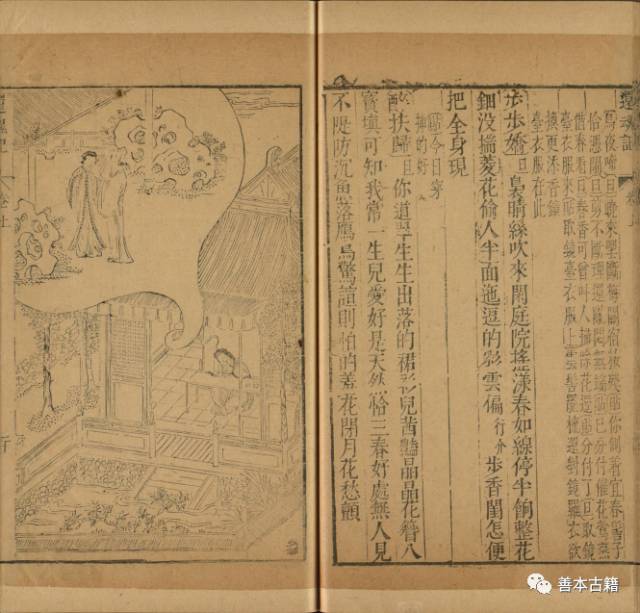 還魂記
卷上
烏夜啼旦曉來望斷梅關宿粧殘貼你側着宜春髻子
恰憑闌旦剪不斷理還亂悶無端貼已分付催花鶯燕
借春看旦春香可曾叫人掃除花逕貼分付了旦取鏡
臺衣服來貼取鏡臺衣服上雲髻罷梳還對鏡羅衣欲
換更添香鏡
臺衣服在此
步步嬌旦裊晴絲吹來閒庭院搖漾春如線停半餉整花
鈿沒揣菱花偷人半面迤逗的彩雲偏行介步香閨怎便
把全身現
貼今日穿
插的好
醉扶歸旦你道翠生生出落的裙衫兒茜艷晶晶花簪八
寶塡可知我常一生兒愛好是天然恰三春好處無人見
不隄防沉魚落鴈鳥驚諠則怕的羞花閉月花愁顫
卷上
善本古籍